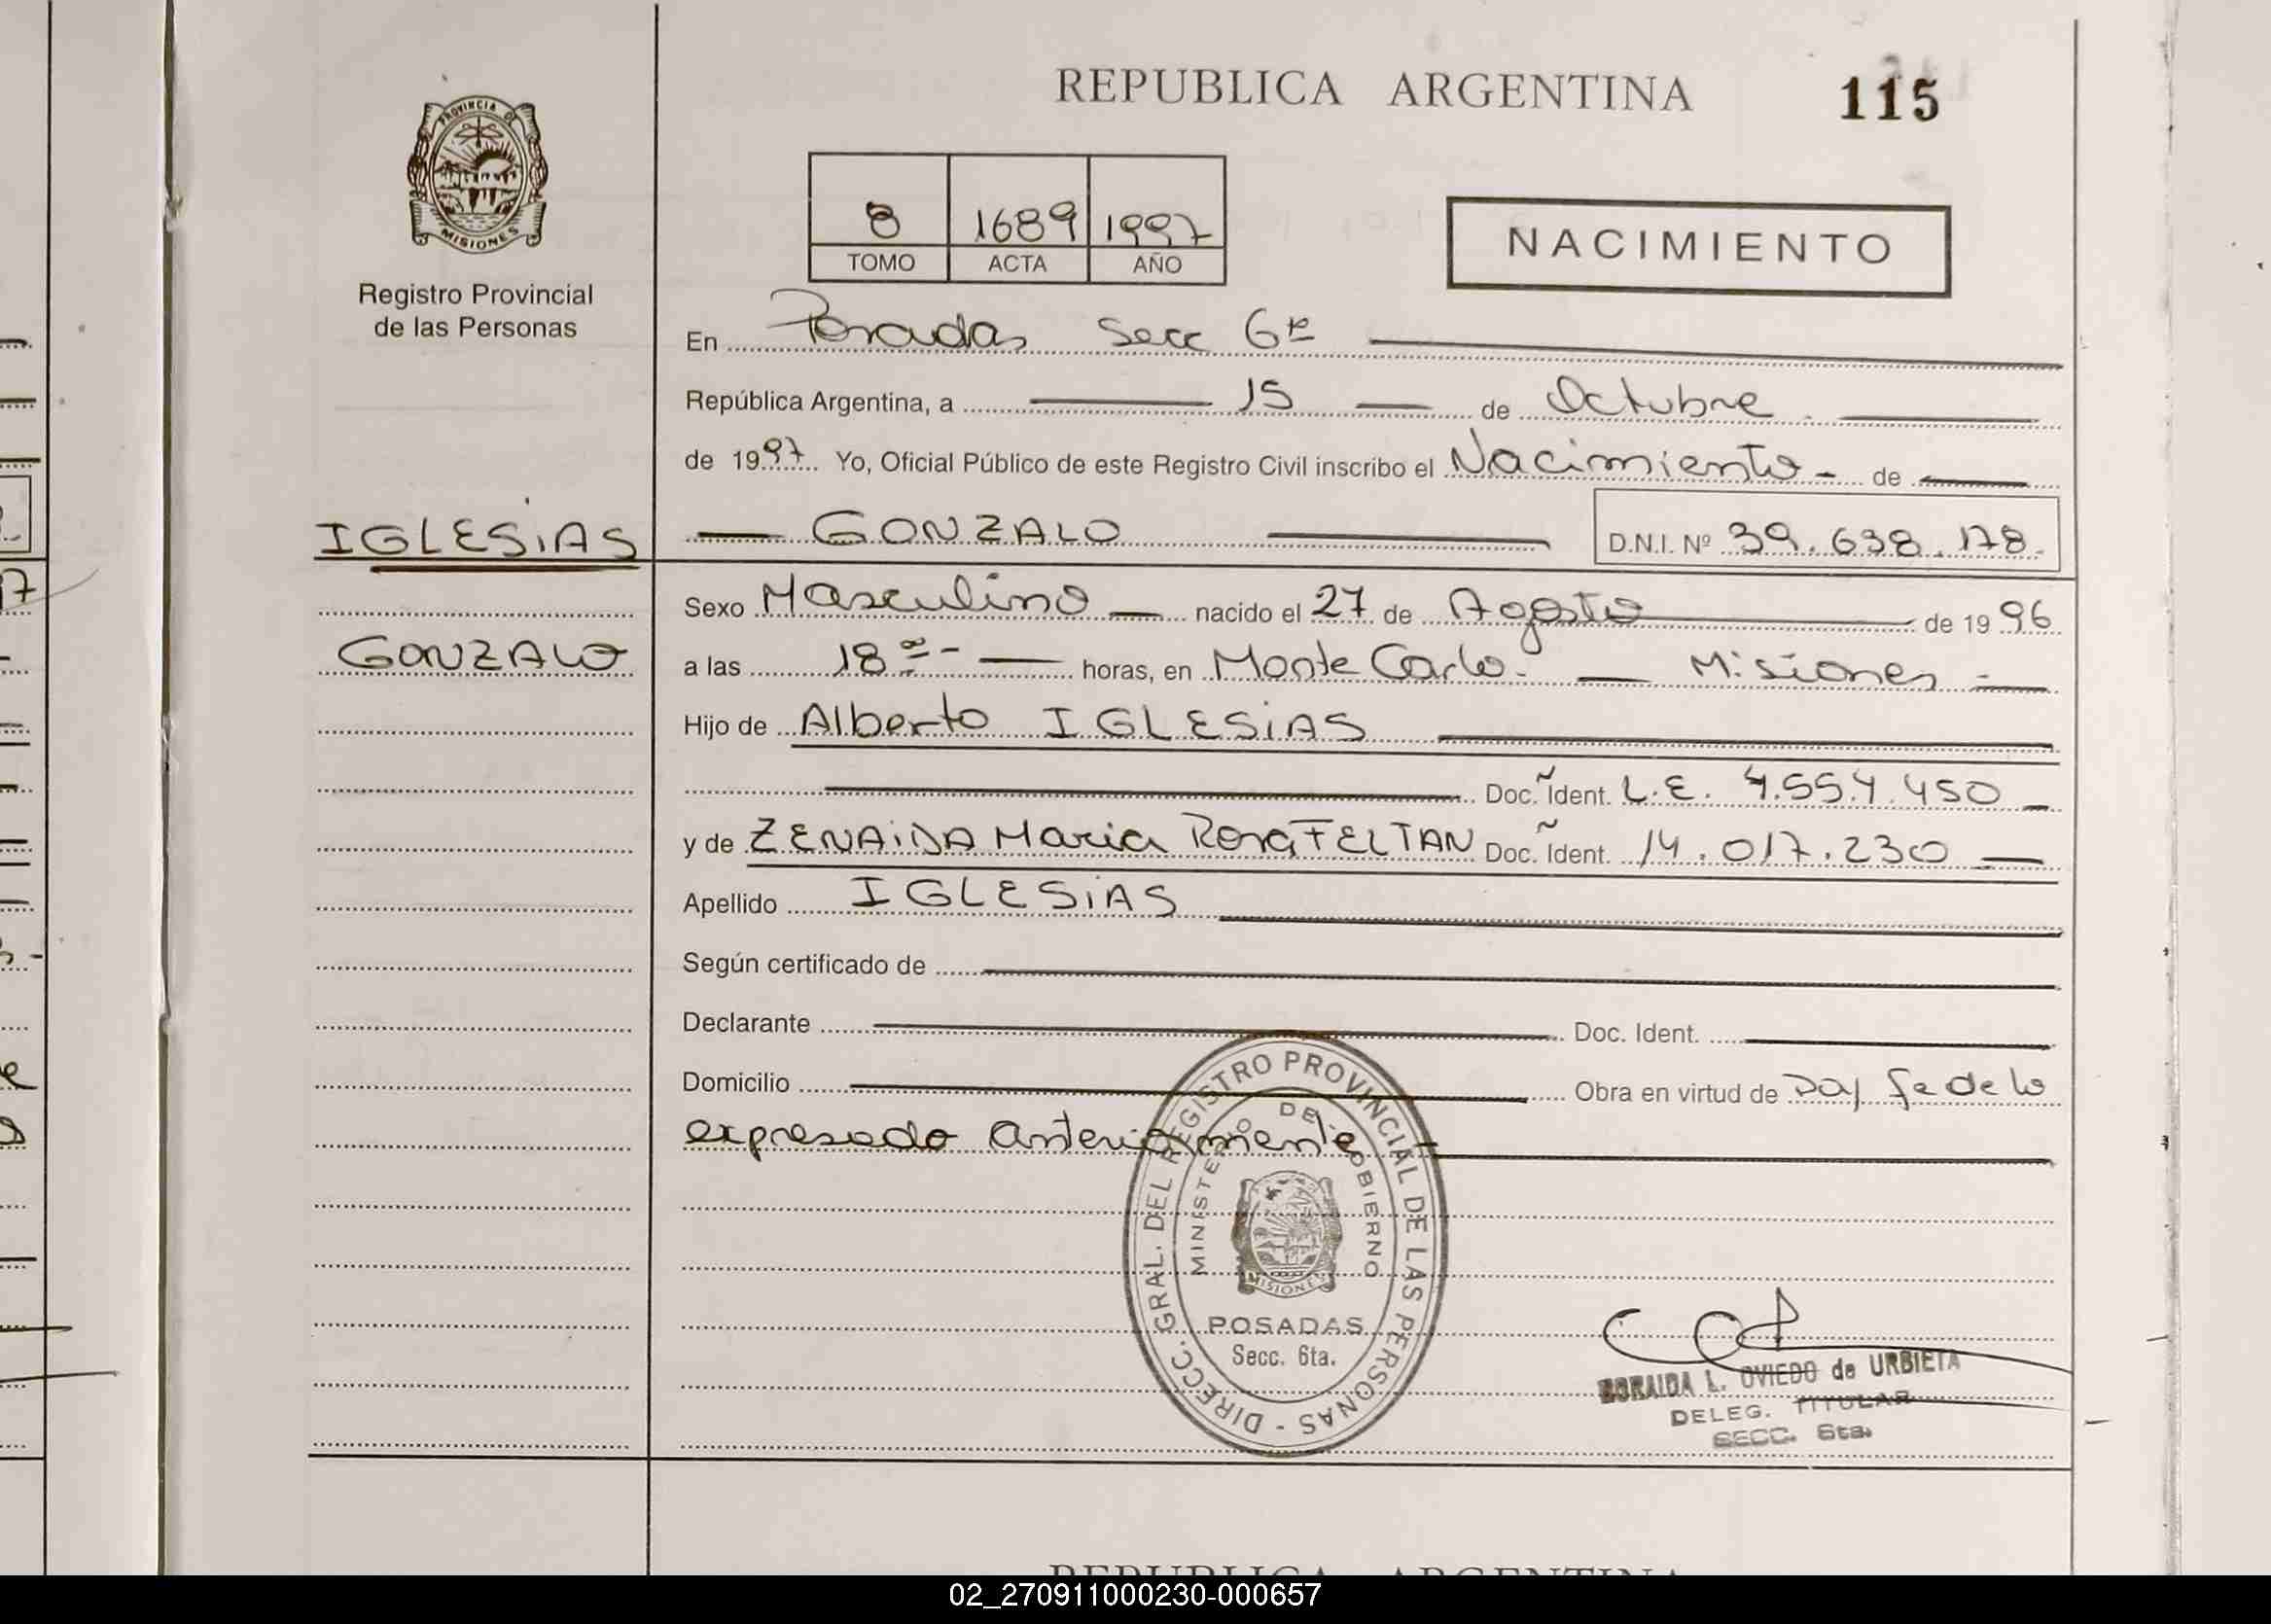 REPUBLICA ARGENTINA 115
PROVINCIA DE
MISIONES
Registro Provincial
de las Personas
8 1689 1997
TOMO ACTA AÑO
NACIMIENTO
En Posadas Secc 6ta
República Argentina, a 15 de Octubre
de 1997 Yo, Oficial Público de este Registro Civil inscribo el Nacimiento - de
IGLESIAS
GONZALO
D.N.I. Nº 39.638.178.
Sexo Masculino nacido el 27 de Agosto de 1996
GONZALO
a las 18 horas, en Monte Carlo - Misiones -
Hijo de Alberto IGLESIAS
Doc. Ident. L.E. 7.554.450
y de ZENAIDA Maria Rosa FELTAN Doc. Ident. 14.017.230
Apellido IGLESIAS
Según certificado de
Declarante Doc. Ident.
Domicilio Obra en virtud de Doy fe de lo
expresado anteriormente -
DIRECC. GRAL. DEL REGISTRO PROVINCIAL DE LAS PERSONAS -
MINISTERIO DE GOBIERNO
MISIONES
POSADAS
Secc. 6ta.
L. OVIEDO de URBIETA
DELEG. TITULAR
SECC. 6ta.
02_270911000230-000657